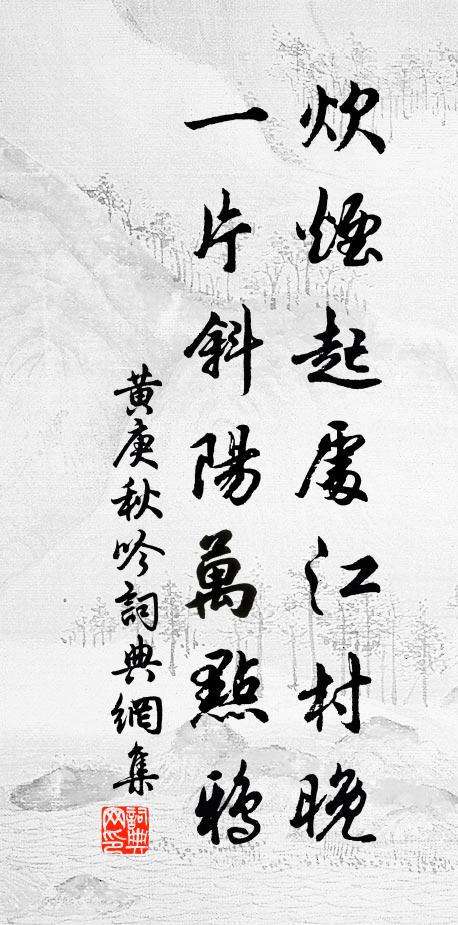 炊煙起處江村晚
一片斜陽萬點鴉
黃庚秋吟詞典網集
詞典网印